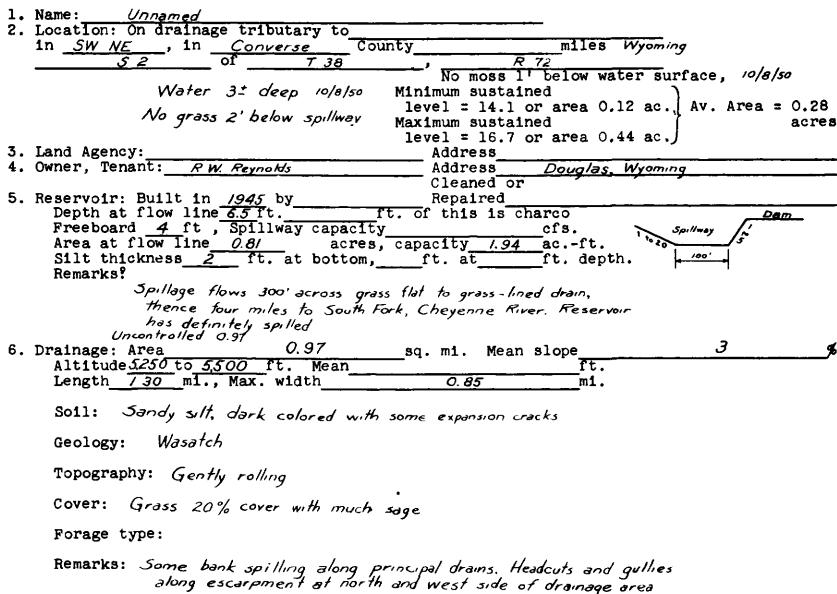 1. Name: Unnamed
2. Location: On drainage tributary to
in SW NE, in Converse County miles Wyoming
S 2 of T 38, R 72
No moss 1' below water surface, 10/8/50
Water 3± deep 10/8/50
No grass 2' below spillway
Minimum sustained
level = 14.1 or area 0.12 ac.
Maximum sustained
level = 16.7 or area 0.44 ac.
Av. Area = 0.28
acres
3. Land Agency: Address
4. Owner, Tenant: R W. Reynolds Address Douglas, Wyoming
Cleaned or
5. Reservoir: Built in 1945 by Repaired
Depth at flow line 6.5 ft. ft. of this is charco
Freeboard 4 ft, Spillway capacity cfs.
Area at flow line 0.81 acres, capacity 1.94 ac.-ft.
Silt thickness 2 ft. at bottom, ft. at ft. depth.
1 to 20 Spillway Dam
100'
Remarks:
Spillage flows 300' across grass flat to grass-lined drain,
thence four miles to South Fork, Cheyenne River. Reservoir
has definitely spilled
Uncontrolled 0.97
6. Drainage: Area 0.97 sq. mi. Mean slope 3 %
Altitude 5,250 to 5,500 ft. Mean ft.
Length 1 30 mi., Max. width 0.85 mi.
Soil: Sandy silt, dark colored with some expansion cracks
Geology: Wasatch
Topography: Gently rolling
Cover: Grass 20% cover with much sage
Forage type:
Remarks: Some bank spilling along principal drains. Headcuts and gullies
along escarpment at north and west side of drainage area